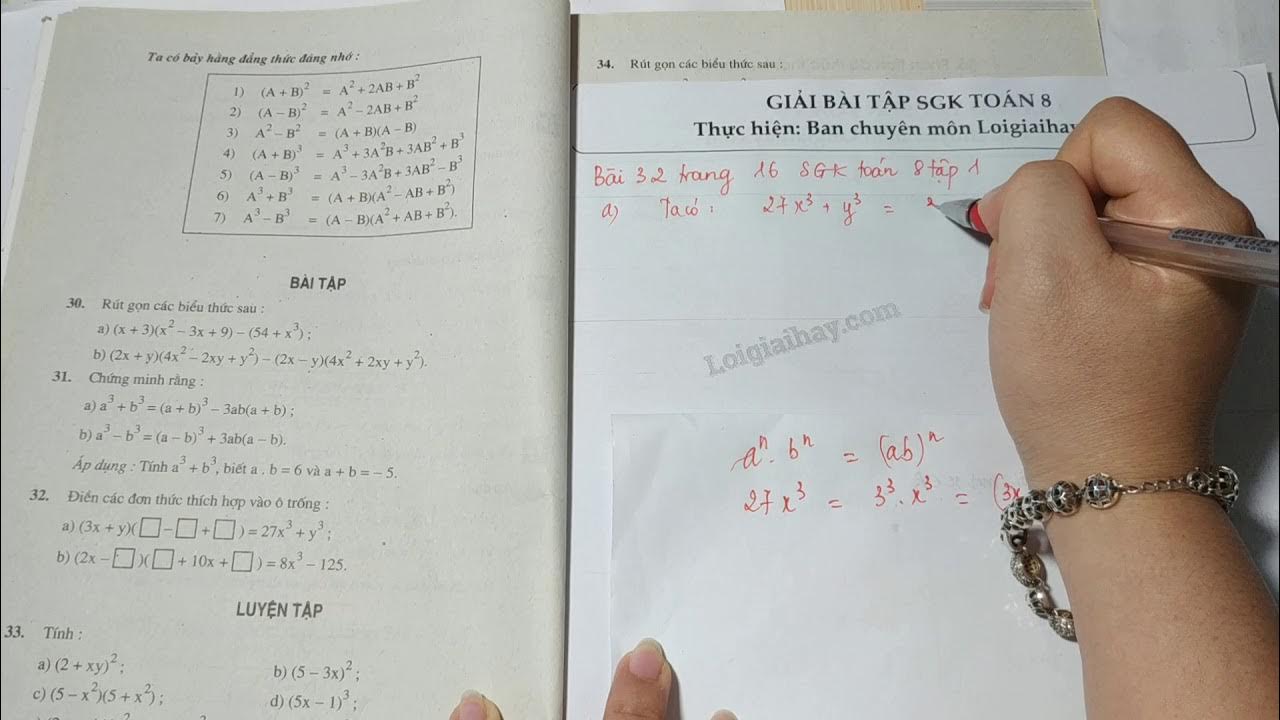 Ta có bảy hằng đẳng thức đáng nhớ :
1) (A + B)² = A² + 2AB + B²
2) (A – B)² = A² – 2AB + B²
3) A² – B² = (A + B)(A – B)
4) (A + B)³ = A³ + 3A²B + 3AB² + B³
5) (A – B)³ = A³ – 3A²B + 3AB² – B³
6) A³ + B³ = (A + B)(A² – AB + B²)
7) A³ – B³ = (A – B)(A² + AB + B²).
BÀI TẬP
30. Rút gọn các biểu thức sau :
a) (x + 3)(x² – 3x + 9) – (54 + x³) ;
b) (2x + y)(4x² – 2xy + y²) – (2x – y)(4x² + 2xy + y²).
31. Chứng minh rằng :
a) a³ + b³ = (a + b)³ – 3ab(a + b) ;
b) a³ – b³ = (a – b)³ + 3ab(a – b).
Áp dụng : Tính a³ + b³, biết a . b = 6 và a + b = – 5.
32. Điền các đơn thức thích hợp vào ô trống :
a) (3x + y)(□ – □ + □) = 27x³ + y³ ;
b) (2x – □)(□ + 10x + □) = 8x³ – 125.
LUYỆN TẬP
33. Tính :
a) (2 + xy)² ;
b) (5 – 3x)² ;
c) (5 – x²)(5 + x²) ;
d) (5x – 1)³ ;
34. Rút gọn các biểu thức sau :
GIẢI BÀI TẬP SGK TOÁN 8
Thực hiện: Ban chuyên môn Loigiaihay
Bài 32 trang 16 SGK toán 8 tập 1
a) Ta có : 27x³ + y³ =
Loigiaihay.com
aⁿ . bⁿ = (ab)ⁿ
27x³ = 3³ . x³ = (3x